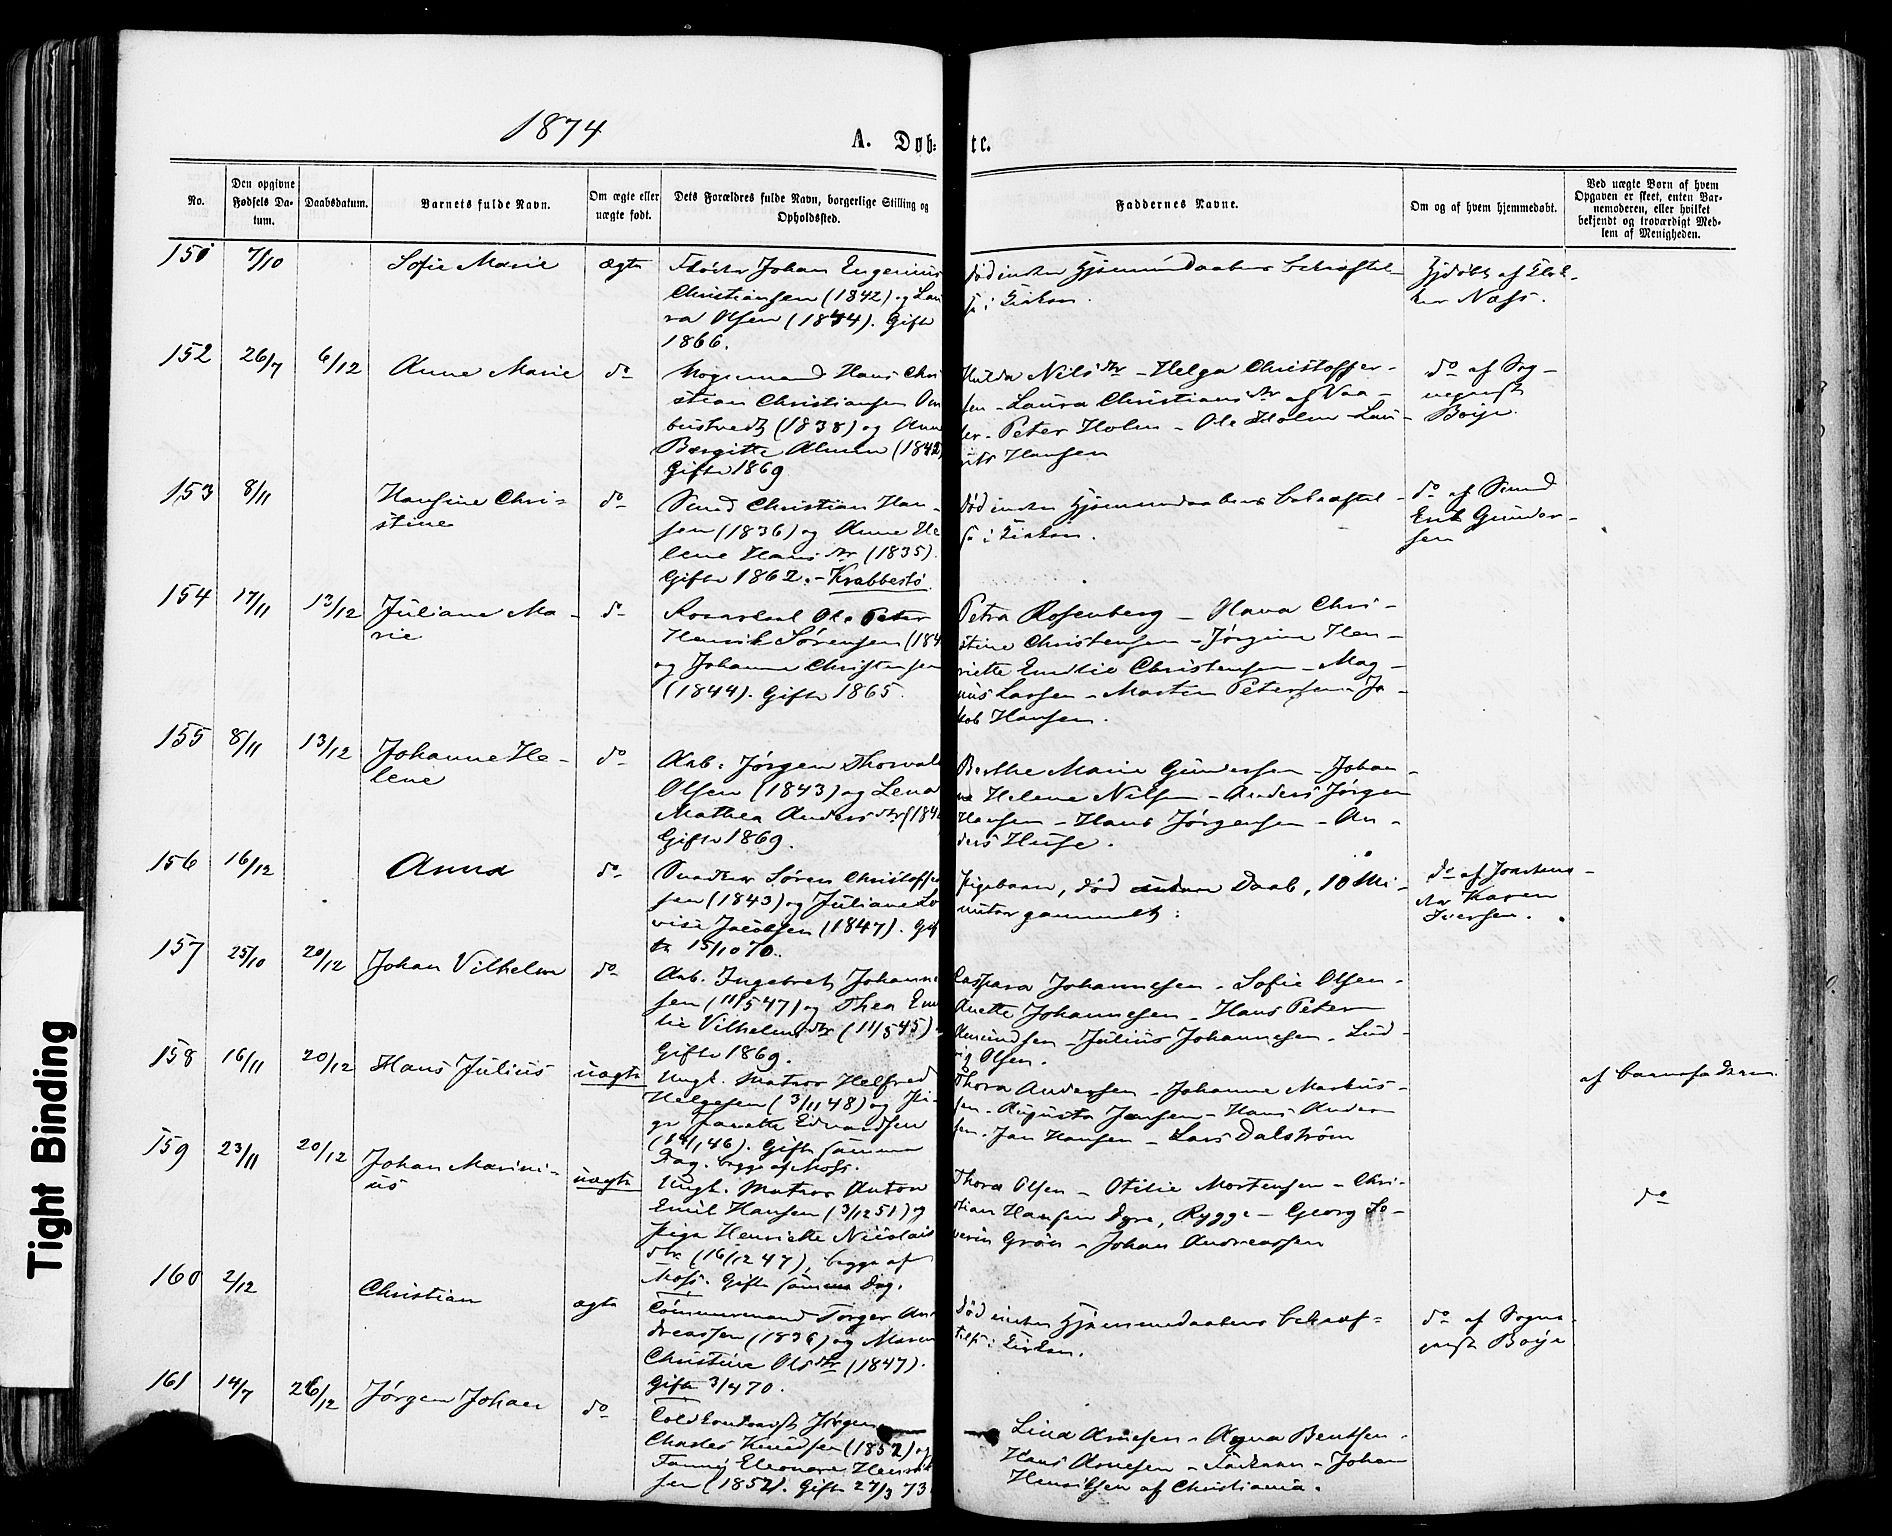 1874
A. Døb-
te.
No.
Den opgivne Fødsels Da-tum.
Daabsdatum.
Barnets fulde Navn.
Om ægte eller uægte født.
Dets Forældres fulde Navn, borgerlige Stilling og Opholdssted.
Faddernes Navne.
Om og af hvem hjemmedøbt.
Ved uægte Børn af hvem Opgaven er skeet, enten Bar-nemoderen, eller hvilket bekjendt og troværdigt Med-lem af Menigheden.
151 7/10 Sofie Marie ægte
Johan Eugenius
Christiansen (1842) og Lau
ra Olsen (1844). Gifte
1866.
død inden Hjemmedaabens bekræftel-
se i Kirken.
Hjdøbt af
Næss.
152 26/7 6/12 Anne Marie do
Hans Chri
stian Christiansen Om
(1838) og Anne
Birgitte (1842)
Gifte 1869
Hulda Nilsdtr - Helga Christoffer-
sen - Laura Christiansdtr af Vaa-
ler - Peter Holm - Ole Holm - Lau-
rits Hansen
do af Sog-
neprest
Boije.
153 8/11 Hansine Chri-
stine do
Smed Christian Han-
sen (1836) og Anne He
lene Hansdtr (1835).
Gifte 1862. - Krabbestø
død inden Hjemmedaabens bekræftel-
se i Kirken.
do af Smed
Erik Gunder-
sen
154 17/11 13/12 Juliane Ma-
rie do
Ole Peter
Henrik Sørensen (184
og Johanne Christensen
(1844). Gifte 1865.
Petra Rosenberg - Hana Chri-
stine Christensen - Jørgine Hen-
riette Emilie Christensen - Mag-
nus Larsen - Martin Petersen - Ja-
kob Hansen.
155 8/11 13/12 Johanne He-
lene do
Arb. Jørgen Thorvald
Olsen (1843) og Lena
Mathea Andersdtr (184
Gifte 1869.
Berthe Marie Gundersen - Johan-
ne Helene Nilsen - Anders Jørgen
Hansen - Hans Jørgensen - An-
ders Huse.
156 16/12 Anna do
Snedker Søren Christoffer
sen (1843) og Juliane Lo
vise Jacobsen (1847). Gif
te 15/10 70.
Pigebarn, død uden Daab, 10 Mi-
nutter gammelt.
do af Jordemo-
dr Karen
Iversen.
157 25/10 20/12 Johan Vilhelm do
Arb. Ingebret Johanne
sen (11/5 47) og Thea Emi
lie Vilhelmsdtr (11/8 45)
Gifte 1869.
Caspara Johannesen - Sofie Olsen -
Anette Johannesen - Hans Peter
Amundsen - Julius Johannesen - Lud-
vig Olsen.
158 16/11 20/12 Hans Julius uægte
Ungk. Matros Helfred
Helgesen (3/11 48) og Pi-
ge Janette Edvardsen
46). Gifte samme
Dag. begge af Moss.
Thora Andersen - Johanne Markus-
sen - Augusta Jansen - Hans Ander
sen - Jan Hansen - Lars Dalstrøm
af barnefaderen
159 23/11 20/12 Johan Marini-
us uægte
Ungk. Matros Anton
Emil Hansen (3/12 51) og
Pige Henriette Nicolais
dtr (16/12 47), begge af
Moss. Gifte samme Dag.
Thora Olsen - Otilie Mortensen - Chri-
stian Hansen Dyre, Rygge - Georg Se-
verin Grøn - Johan Andreassen
do
160 2/12 Christian ægte
Tømmermand Torger An
dreassen (1836) og Maren
Christine Olsdtr (1847).
Gifte 3/4 70.
død inden Hjemmedaabens bekræf-
telse i Kirken.
do af Sogne-
prest Boije
161 14/7 26/12 Jørgen Johan do
Toldkontorist Jørgen
Charles Knudsen (1852) og
Fanny Eleonore Henrik
sen (1852). Gifte 27/3 73
Lina Arnesen - Agna Bentsen -
Hans Arnesen - Faderen - Johan
Henriksen af Christiania.
Tight Binding